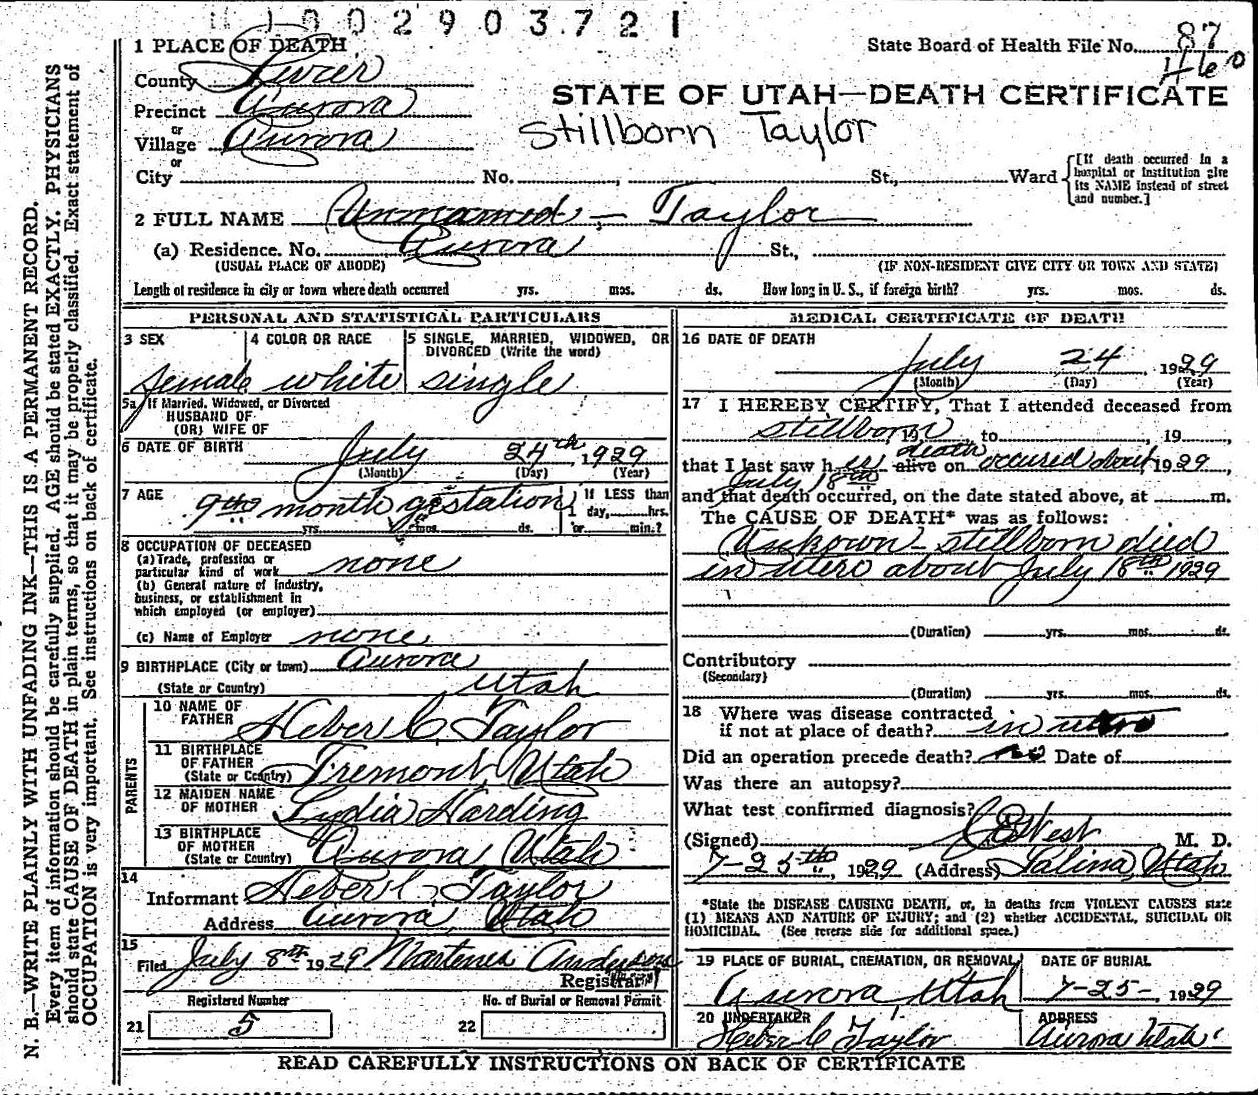 1002903721
State Board of Health File No. 87
460
1 PLACE OF DEATH
County Sevier
STATE OF UTAH—DEATH CERTIFICATE
Precinct Aurora
or
Village Aurora
Stillborn Taylor
or
City No. , St., Ward
[If death occurred in a hospital or institution give its NAME instead of street and number.]
2 FULL NAME Unnamed - Taylor
(a) Residence. No. Aurora St.,
(USUAL PLACE OF ABODE) (IF NON-RESIDENT GIVE CITY OR TOWN AND STATE)
Length of residence in city or town where death occurred yrs. mos. ds. How long in U. S., if foreign birth? yrs. mos. ds.
N. B.—WRITE PLAINLY WITH UNFADING INK—THIS IS A PERMANENT RECORD.
Every item of information should be carefully supplied. AGE should be stated EXACTLY. PHYSICIANS
should state CAUSE OF DEATH in plain terms, so that it may be properly classified. Exact statement of
OCCUPATION is very important. See instructions on back of certificate.
PERSONAL AND STATISTICAL PARTICULARS
3 SEX 4 COLOR OR RACE 5 SINGLE, MARRIED, WIDOWED, OR
DIVORCED (Write the word)
female white single
5a If Married, Widowed, or Divorced
HUSBAND OF
(OR) WIFE OF
6 DATE OF BIRTH July 24th, 1929
(Month) (Day) (Year)
7 AGE 9th month gestation If LESS than
1 day, hrs.
yrs. mos. ds. or min.?
8 OCCUPATION OF DECEASED
(a) Trade, profession or
particular kind of work none
(b) General nature of industry,
business, or establishment in
which employed (or employer)
(c) Name of Employer none
9 BIRTHPLACE (City or town) Aurora
(State or Country) Utah
PARENTS
10 NAME OF
FATHER Heber C Taylor
11 BIRTHPLACE
OF FATHER
(State or Country) Fremont, Utah
12 MAIDEN NAME
OF MOTHER Lydia Harding
13 BIRTHPLACE
OF MOTHER
(State or Country) Aurora Utah
14
Informant Heber C Taylor
Address Aurora, Utah
15
Filed July 8th 1929 Anderson
Registrar
Registered Number No. of Burial or Removal Permit
21 5 22
MEDICAL CERTIFICATE OF DEATH
16 DATE OF DEATH
July 24, 1929
(Month) (Day) (Year)
17 I HEREBY CERTIFY, That I attended deceased from
stillborn, 19 to , 19 ,
death
that I last saw h er alive on occured about 1929,
July 18th
and that death occurred, on the date stated above, at m.
The CAUSE OF DEATH* was as follows:
Unkown - stillborn died
in utero about July 18th 1929
(Duration) yrs. mos. ds.
Contributory
(Secondary)
(Duration) yrs. mos. ds.
18 Where was disease contracted
if not at place of death? in utero
Did an operation precede death? no Date of
Was there an autopsy?
What test confirmed diagnosis?
(Signed) West M. D.
7-25th, 1929 (Address) Salina, Utah
*State the DISEASE CAUSING DEATH, or, in deaths from VIOLENT CAUSES state
(1) MEANS AND NATURE OF INJURY; and (2) whether ACCIDENTAL, SUICIDAL OR
HOMICIDAL. (See reverse side for additional space.)
19 PLACE OF BURIAL, CREMATION, OR REMOVAL DATE OF BURIAL
Aurora, Utah 7-25-, 1929
20 UNDERTAKER ADDRESS
Heber C Taylor Aurora Utah
READ CAREFULLY INSTRUCTIONS ON BACK OF CERTIFICATE